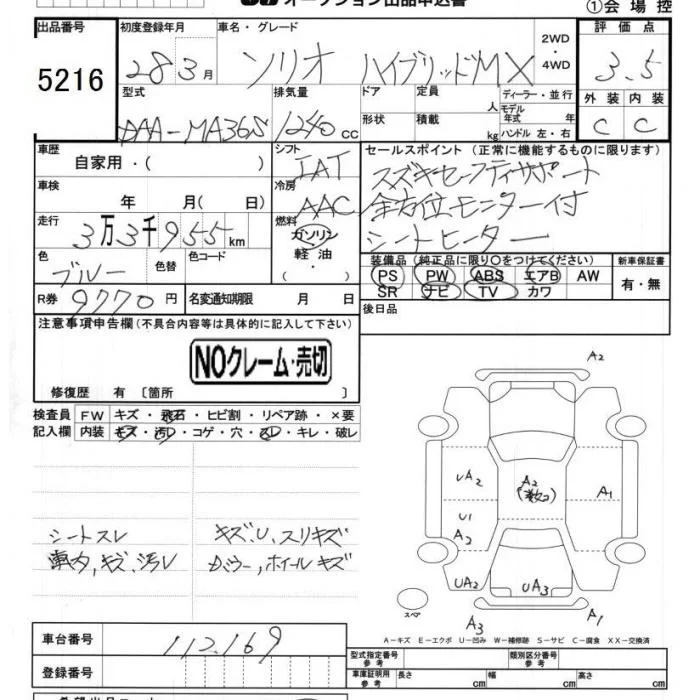 オークション出品申込書
①会場控
出品番号
5216
初度登録年月
28 3月
車名・グレード
ソリオ ハイブリッドMX
2WD
・
4WD
評価点
3.5
外装 内装
C C
型式
DAA-MA36S
排気量
1240 cc
ドア
形状
定員 人
積載 kg
ディーラー・並行
モデル年式 年
ハンドル 左・右
車歴
自家用・( )
シフト
IAT
セールスポイント (正常に機能するものに限ります)
スズキセーフティサポート
全方位モニター付
シートヒーター
車検
年 月( 日)
冷房
AAC
走行
3万3千955km
燃料
ガソリン
軽油
色
ブルー
色替
色コード
装備品(純正品に限り○をつけてください)
PS PW ABS エアB AW
SR ナビ TV カワ
新車保証書
有・無
R券 9770円
名変通知期限 月 日
後日品
注意事項申告欄(不具合内容等は具体的に記入して下さい)
NOクレーム・売切
修復歴 有 〔箇所 〕
検査員
記入欄
FW キズ・飛石・ヒビ割・リペア跡・×要
内装 キズ・汚レ・コゲ・穴・スレ・キレ・破レ
シートスレ
車内,キズ,汚レ
キズU,スリキズ
D.ミラー,ホイールキズ
A2
UA2
A2
A1
U1
A2
UA2
UA3
スペア
A3
A1
A-キズ E-エクボ U-凹み W-補修跡 S-サビ C-腐食 XX-交換済
車台番号 112169
登録番号
型式指定番号
参考
類別区分番号
参考
車庫証明用
参考
長さ cm
幅 cm
高さ cm